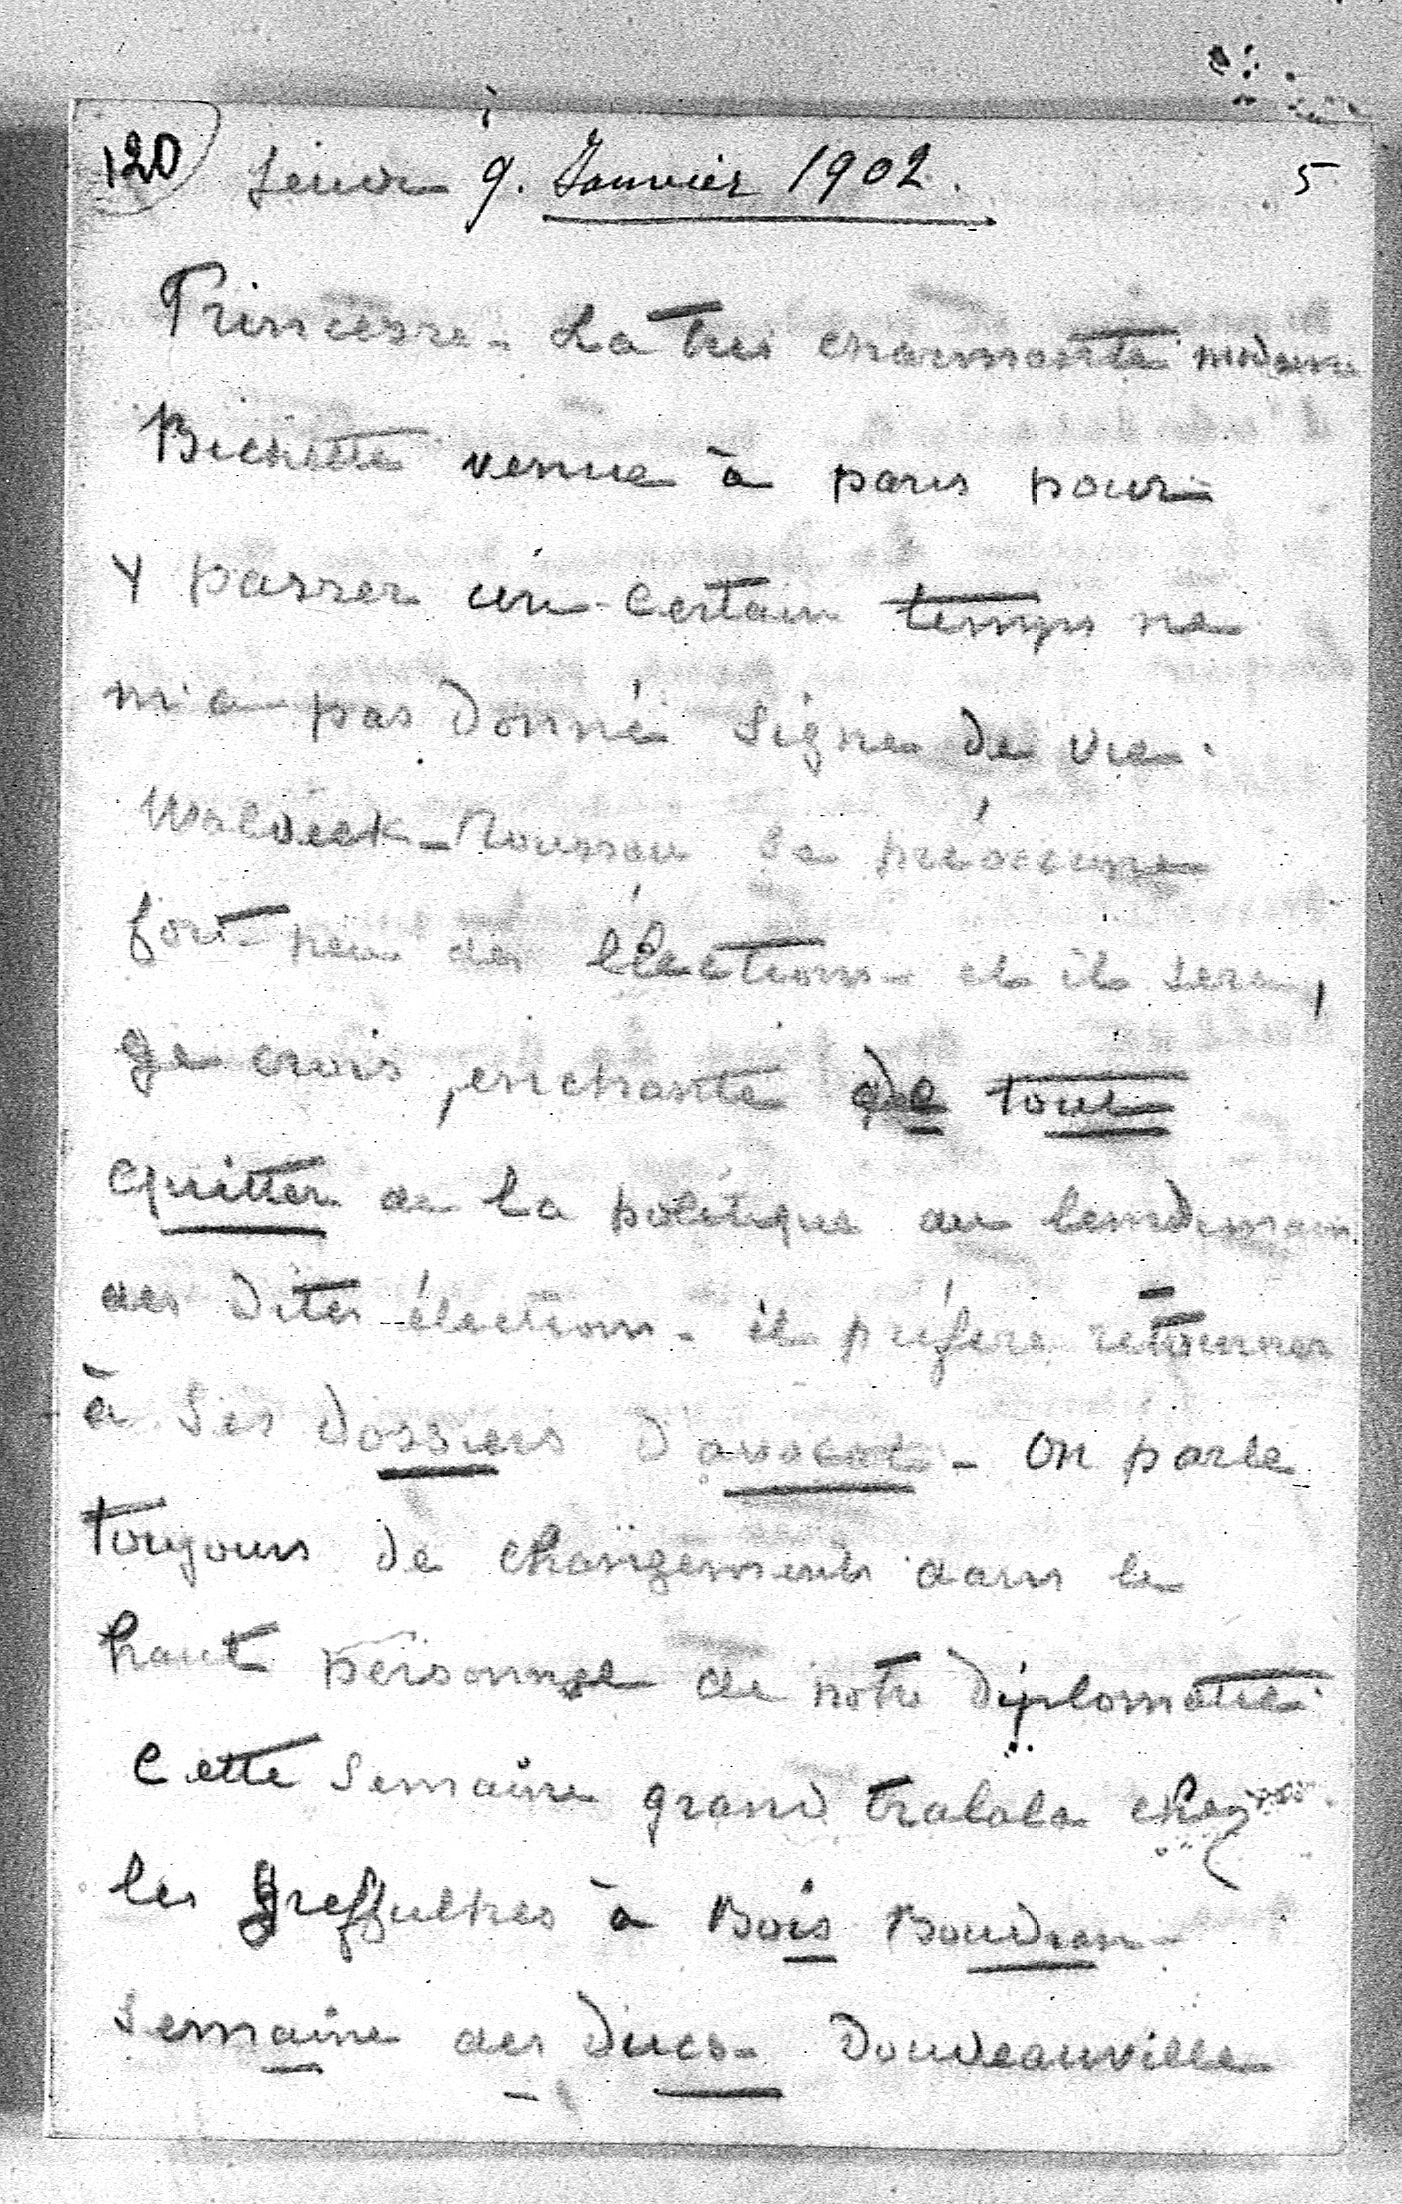 120 Jeudi 9. Janvier 1902. 5
Princesse - La très charmante madame
Bichette venue à paris pour
y passer un certain temps ne
m'a pas donné signe de vie.
Waldeck-Rousseau se préoccupe
fort peu des élections - et il sera,
je crois, enchanté de tout
quitter de la politique au lendemain
des dites élections - il préfère retourner
à ses dossiers d'avocat - on parle
toujours de changements dans le
haut personnel de notre diplomatie.
Cette semaine grand tralala chez
les greffulhes à Bois Boudran -
semaine des ducs - Doudeauville